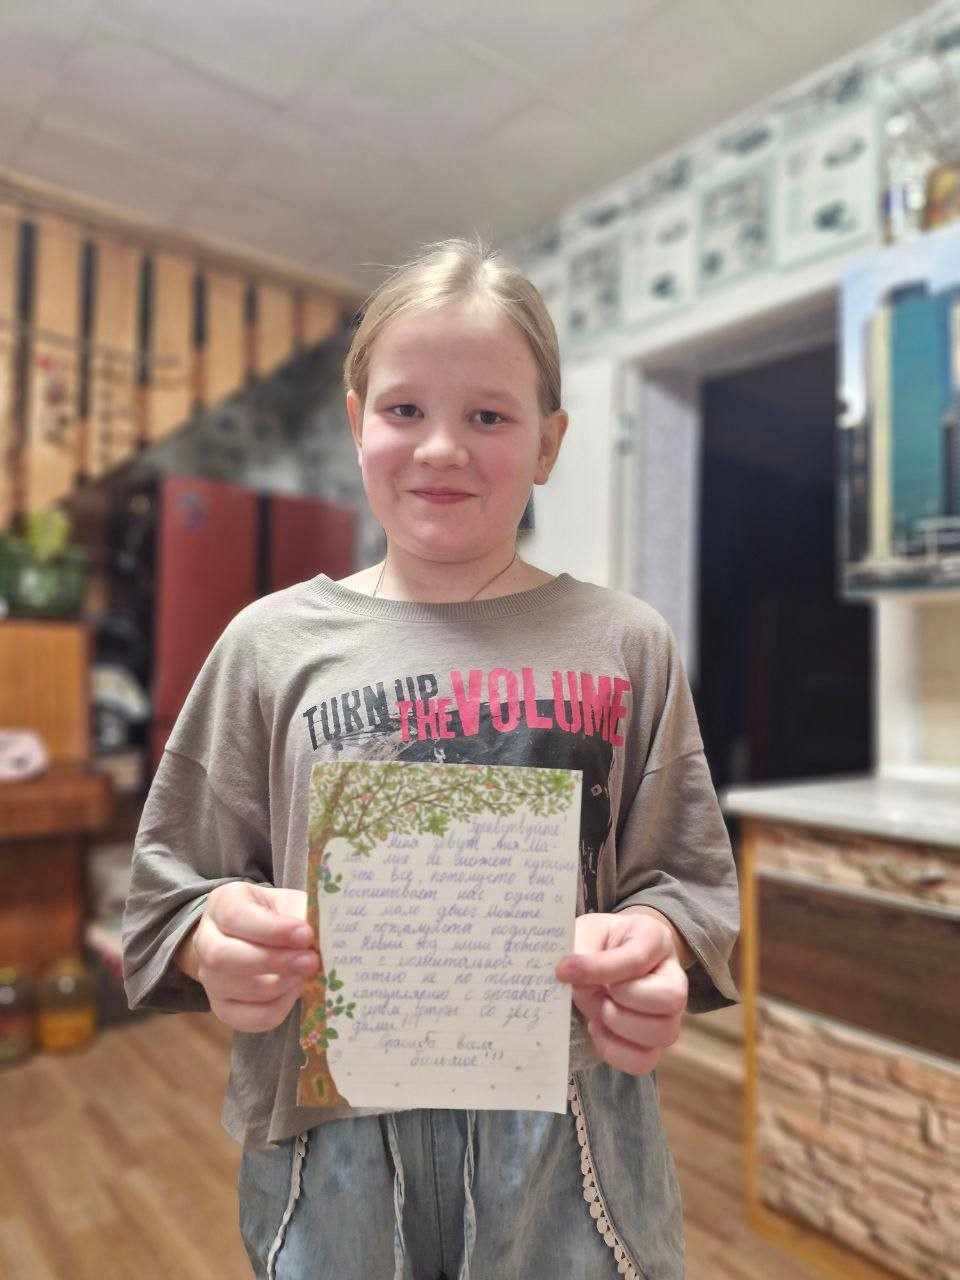 TURN UP
THE VOLUME
Здравствуйте!
Меня зовут Аня. Ма-
ма моя не может купить
это всё, потомусто она
воспитывает нас одна и
у неё мало денег. Можете
мне пожалуйста подарить
на Новый год мини фотопо-
рат с моментальной пе-
чатью не по телефону,
канцелярию с органай-
зером, шторы со звез-
дами!!
Спасибо вам
большое!!!